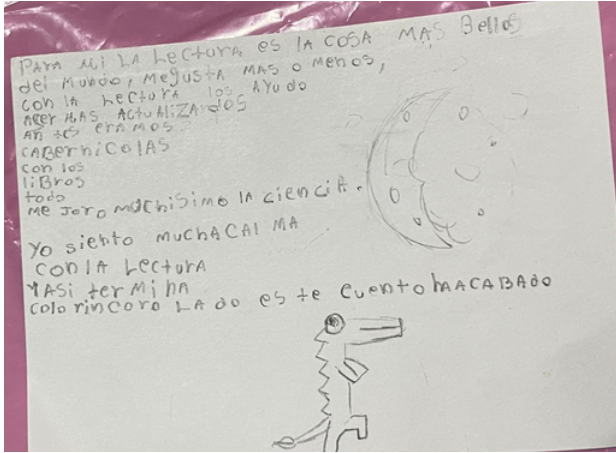 PArA Mi LA LecturA es lA COSA MAS Bellas
del Mundo, MegustA MAS o Menos,
con lA LecturA los AYudo
Acer MAS ActuAliZAdos
An tes erA mos
CABerniColAS
con los
liBros
todo
me Joro mUchisimo lA cienciA.
Yo siento MuchACAl MA
con lA LecturA
YASi ter Mi nA
colo rin coro LA do es te cuento hAACABADO